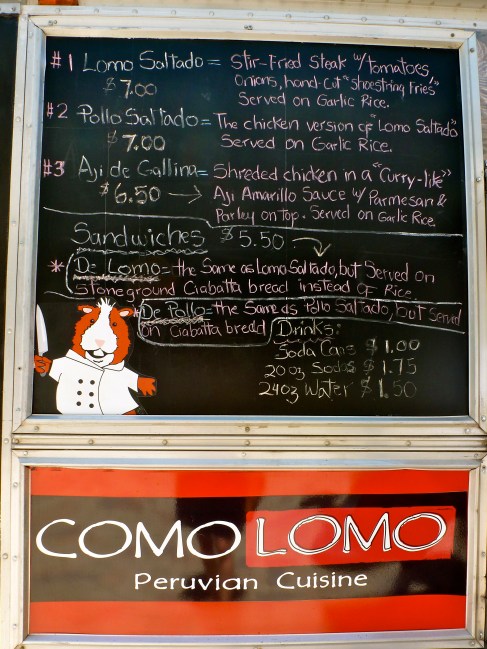 #1 Lomo Saltado = Stir-Fried Steak w/tomatoes,
$7.00 Onions, hand-Cut "Shoestring Fries"
Served on Garlic Rice.
#2 Pollo Saltado = The chicken version of "Lomo Saltado"
$7.00 Served on Garlic Rice.
#3 Aji de Gallina = Shreded chicken in a "Curry-like"
$6.50 → Aji Amarillo Sauce w/ Parmesan &
Parley on top. Served on Garlic Rice.
Sandwiches $5.50
* De Lomo = the Same as Lomo Saltado, but Served on
Stoneground Ciabatta bread instead of Rice.
* De Pollo = the Same as Pollo Saltado, but served
on Ciabatta bread
Drinks:
Soda Cans $1.00
20oz Sodas $1.75
24oz Water $1.50
COMO LOMO
Peruvian Cuisine